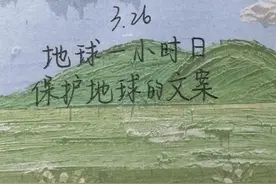 3.26
地球一小时日
保护地球的文案